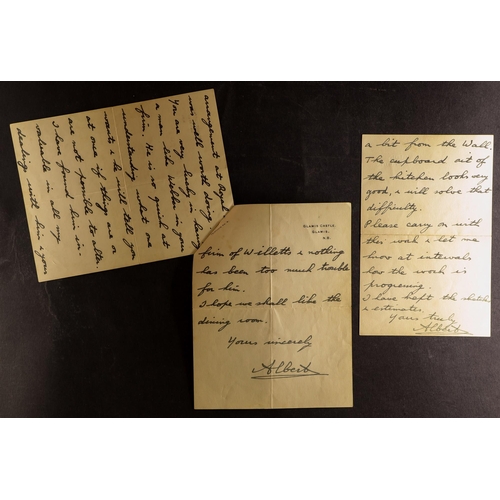 arrangement at
was well worth doing.
You are very lucky in having
a man like Webber in your
firm. He is so quick at
understanding what one
wants & he will tell you
at once if things are or
are not possible to alter.
I have found him in-
valuable in all my
dealing with him yours
GLAMIS CASTLE,
GLAMIS,
N.B.
firm of Willetts & nothing
has been too much trouble
for him.
I hope we shall like the
dining room.
Yours sincerely
Albert
a bit from the Wall.
The cupboard out of
the kitchen looks very
good, & will solve that
difficulty.
Please carry on with
this work & let me
know at intervals
how the work is
progressing.
I have kept the sketches
& estimates.
Yours truly
Albert